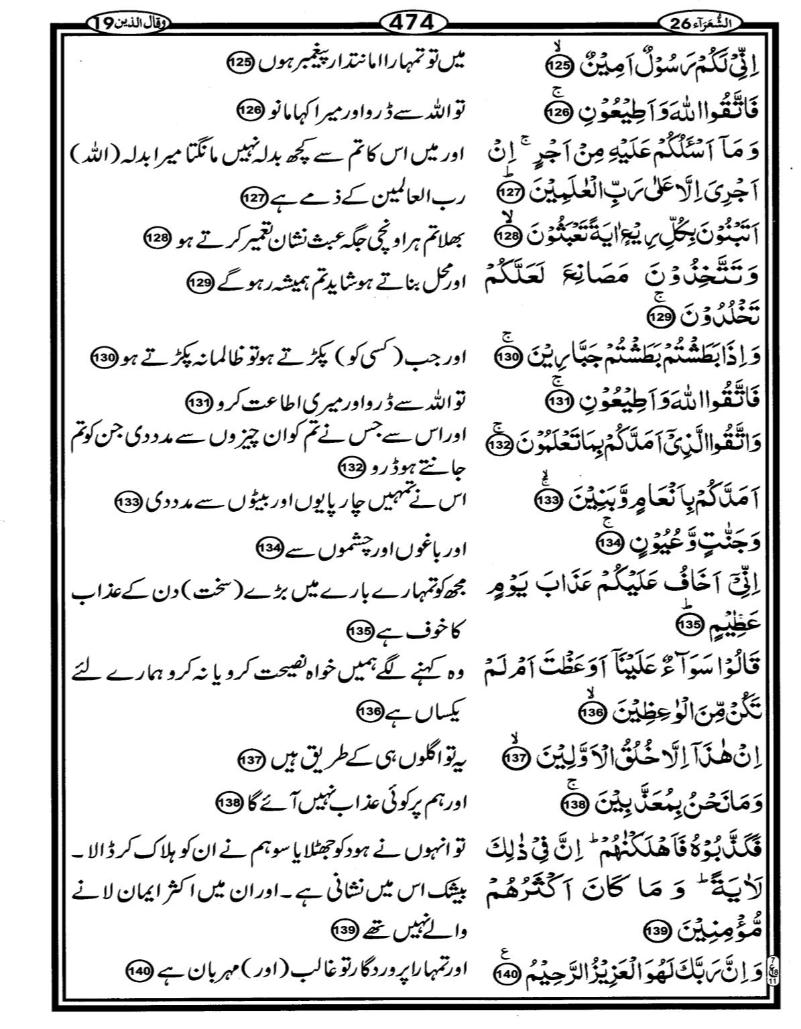 الشُّعَرَآء 26
474
وقال الذين 19
اِنِّیۡ لَكُمۡ رَسُوۡلٌ اَمِیۡنٌ ۙ 125
میں تو تمہارا امانتدار پیغمبر ہوں 125
فَاتَّقُوا اللّٰهَ وَاَطِیۡعُوۡنِ ۚ 126
تو اللہ سے ڈرو اور میرا کہا مانو 126
وَ مَاۤ اَسۡـَٔلُكُمۡ عَلَیۡهِ مِنۡ اَجۡرٍ ۚ اِنۡ
اور میں اس کا تم سے کچھ بدلہ نہیں مانگتا میرا بدلہ (اللہ)
اَجۡرِیَ اِلَّا عَلٰی رَبِّ الۡعٰلَمِیۡنَ ؕ 127
رب العالمین کے ذمے ہے 127
اَتَبۡنُوۡنَ بِكُلِّ رِیۡعٍ اٰیَةً تَعۡبَثُوۡنَ ۙ 128
بھلا تم ہر اونچی جگہ عبث نشان تعمیر کرتے ہو 128
وَ تَتَّخِذُوۡنَ مَصَانِعَ لَعَلَّكُمۡ
اور محل بناتے ہو شاید تم ہمیشہ رہو گے 129
تَخۡلُدُوۡنَ ۚ 129
وَ اِذَا بَطَشۡتُمۡ بَطَشۡتُمۡ جَبَّارِیۡنَ ۚ 130
اور جب (کسی کو) پکڑتے ہو تو ظالمانہ پکڑتے ہو 130
فَاتَّقُوا اللّٰهَ وَاَطِیۡعُوۡنِ ۚ 131
تو اللہ سے ڈرو اور میری اطاعت کرو 131
وَاتَّقُوا الَّذِیۡۤ اَمَدَّكُمۡ بِمَا تَعۡلَمُوۡنَ ۚ 132
اور اس سے جس نے تم کو ان چیزوں سے مدد دی جن کو تم
جانتے ہو ڈرو 132
اَمَدَّكُمۡ بِاَنۡعَامٍ وَّ بَنِیۡنَ ۙ 133
اس نے تمہیں چارپایوں اور بیٹوں سے مدد دی 133
وَ جَنّٰتٍ وَّ عُیُوۡنٍ ۚ 134
اور باغوں اور چشموں سے 134
اِنِّیۡۤ اَخَافُ عَلَیۡكُمۡ عَذَابَ یَوۡمٍ
مجھ کو تمہارے بارے میں بڑے (سخت) دن کے عذاب
عَظِیۡمٍ ؕ 135
کا خوف ہے 135
قَالُوۡا سَوَآءٌ عَلَیۡنَاۤ اَوَعَظۡتَ اَمۡ لَمۡ
وہ کہنے لگے ہمیں خواہ نصیحت کرو یا نہ کرو ہمارے لئے
تَكُنۡ مِّنَ الۡوٰعِظِیۡنَ ۙ 136
یکساں ہے 136
اِنۡ هٰذَاۤ اِلَّا خُلُقُ الۡاَوَّلِیۡنَ ۙ 137
یہ تو اگلوں ہی کے طریق ہیں 137
وَ مَا نَحۡنُ بِمُعَذَّبِیۡنَ ۚ 138
اور ہم پر کوئی عذاب نہیں آئے گا 138
فَكَذَّبُوۡهُ فَاَهۡلَكۡنٰهُمۡ ؕ اِنَّ فِیۡ ذٰلِكَ
تو انہوں نے ہود کو جھٹلایا سو ہم نے ان کو ہلاک کر ڈالا۔
لَاٰیَةً ؕ وَ مَا كَانَ اَكۡثَرُهُمۡ
بیشک اس میں نشانی ہے۔ اور ان میں اکثر ایمان لانے
مُّؤۡمِنِیۡنَ 139
والے نہیں تھے 139
وَ اِنَّ رَبَّكَ لَهُوَ الۡعَزِیۡزُ الرَّحِیۡمُ ع 140
اور تمہارا پروردگار تو غالب (اور) مہربان ہے 140